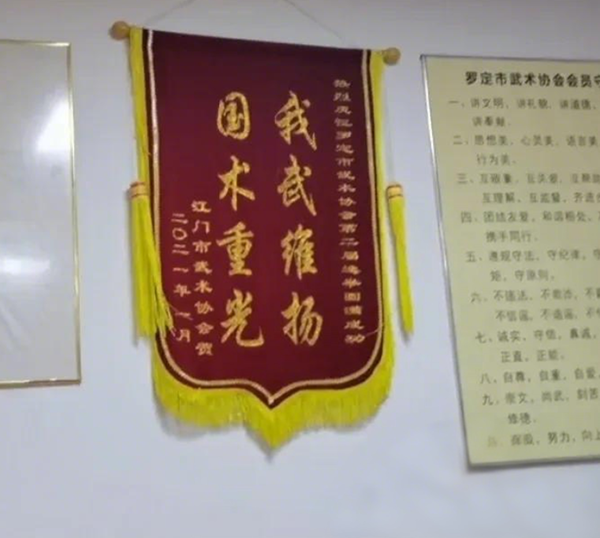 热烈庆祝罗定市武术协会第二届选举圆满成功
我武维扬
国术重光
江门市武术协会贺
二〇二一年
月
罗定市武术协会会员守
一、讲文明，讲礼貌，讲道德，
讲奉献。
二、思想美，心灵美，语言美
行为美。
三、互敬重，互关爱，互帮助
互理解，互监督，齐进步
四、团结友爱，和谐相处，
携手同行。
五、遵规守法，守纪律，守
矩，守原则。
六、不违法，不
不信谣，不造谣，不传
七、诚实，守信，真诚，
正直，正能
八、自尊，自重，自爱，
九、崇文，尚武，刻苦
修德。
努力，向上